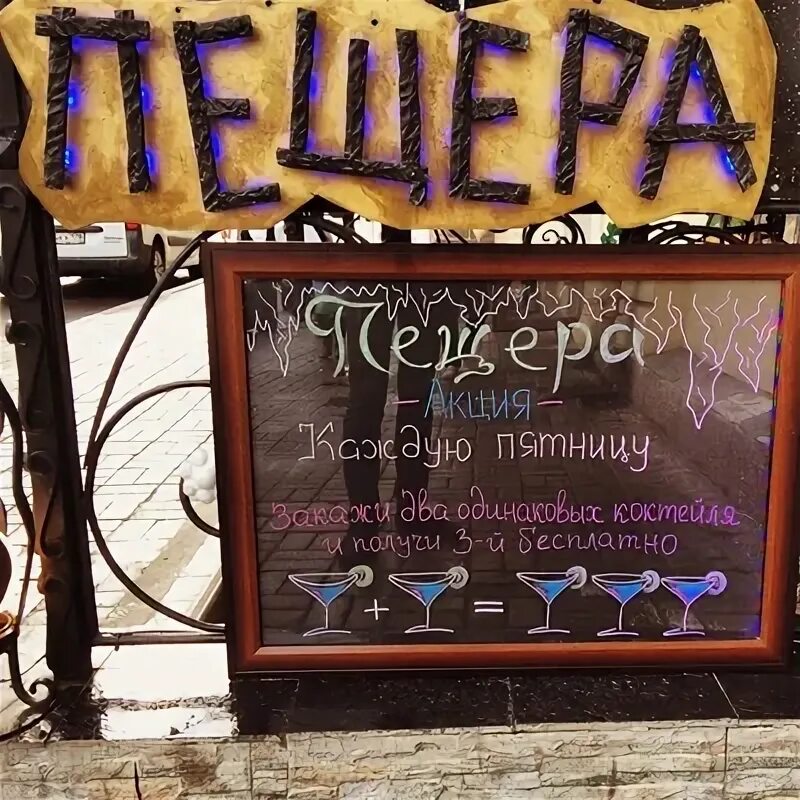 ПЕЩЕРА
Пещера
- Акция -
Каждую пятницу
Закажи два одинаковых коктейля
и получи 3-й бесплатно
+ =